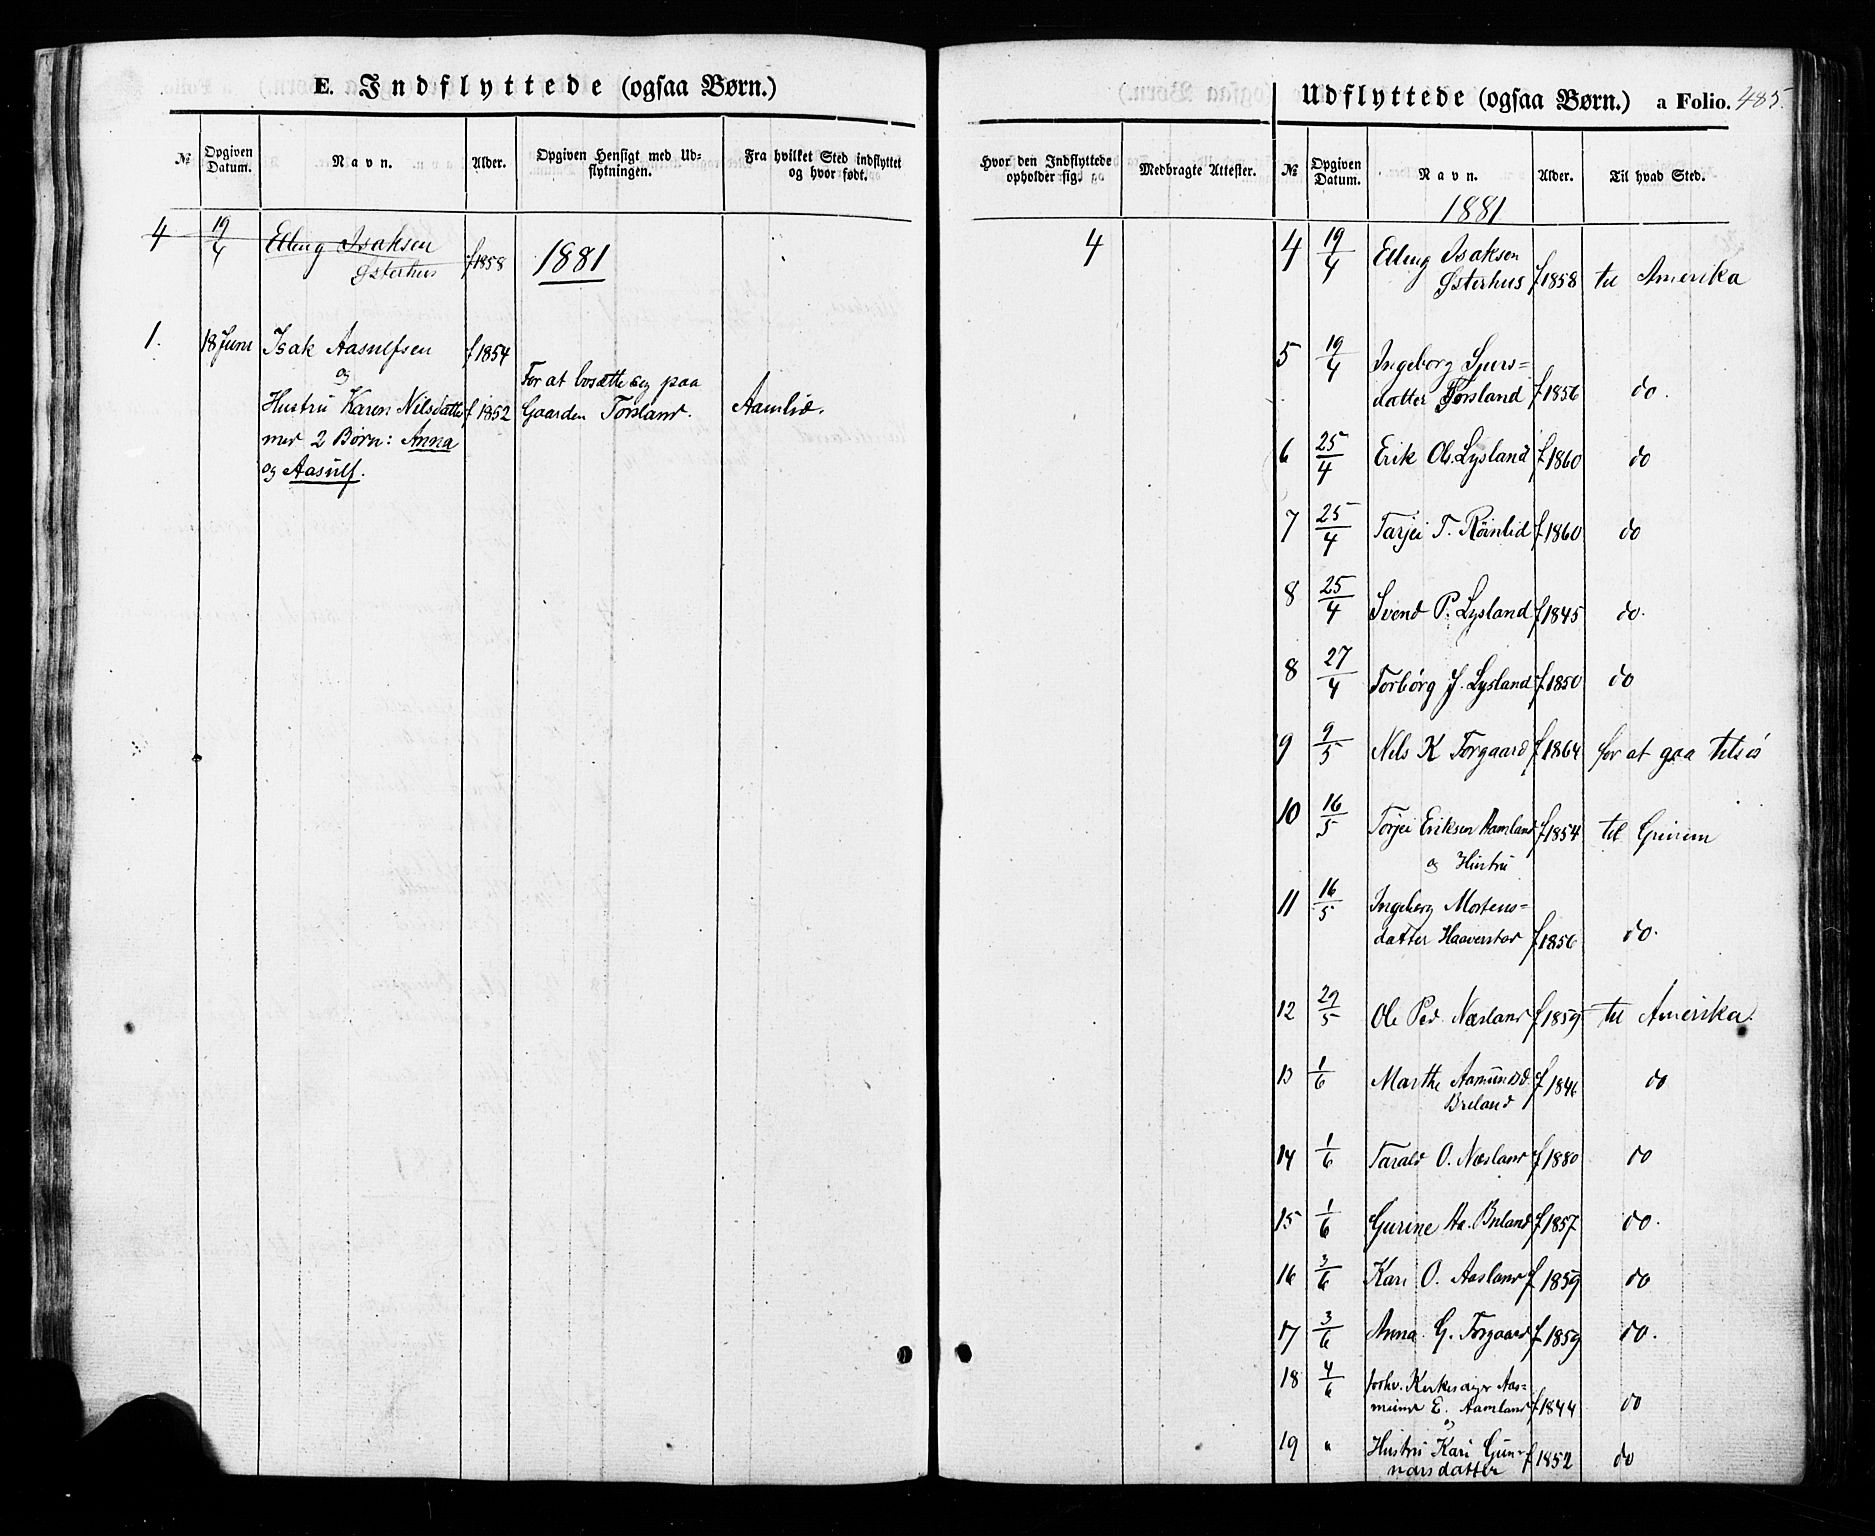 E. Indflyttede (ogsaa Børn.)
№ Opgiven Datum. Navn. Alder. Opgiven Hensigt med Udflytningen. Fra hvilket Sted indflyttet og hvor født.
4 19/4 Elling Isaksen
Østerhus f 1858 1881
1. 18 Juni Isak Aasulfsen f 1854
og
For at bosætte sig paa
Hustru Karen Nilsdatter f 1852 Gaarden Torsland. Aamlid.
med 2 Børn: Anna
og Aasulf.
Udflyttede (ogsaa Børn.) a Folio. 485.
Hvor den Indflyttede opholder sig. Medbragte Attester. № Opgiven Datum. Navn. Alder. Til hvad Sted.
1881
4
4 19/4 Elling Isaksen
Østerhus f 1858 til Amerika
5 19/4 Ingeborg Sjurs=
datter Torsland f 1856 do.
6 25/4 Erik Ol. Lysland f 1860 do
7 25/4 Tarjei T. Röinlid f 1860 do
8 25/4 Svend P. Lysland f 1845 do.
8 27/4 Torbórg J. Lysland f 1850 do
9 9/5 Nils K Torgaard f 1864 for at gaa tilsös
10 16/5 Torjei Eriksen Aamland f 1854 til Grinem
og Hustru
11 16/5 Ingeborg Mortens=
datter Haaverstad f 1856 do.
12 29/5 Ole Ped. Næsland f 1859 til Amerika.
13 1/6 Marthe Aamundsd. f 1846 do
Breland
14 1/6 Tarald O. Næsland f 1880 do
15 1/6 Gurine Aa. Breland f 1857 do.
16 3/6 Kari O. Aasland f 1859 do
17 3/6 Anna G. Torgaard f 1859 do.
18 4/6 forhv. Kirkesanger Aas=
mund E. Aamland f 1844 do
og
19 " Hustru Kari Gun=
narsdatter f 1852 do